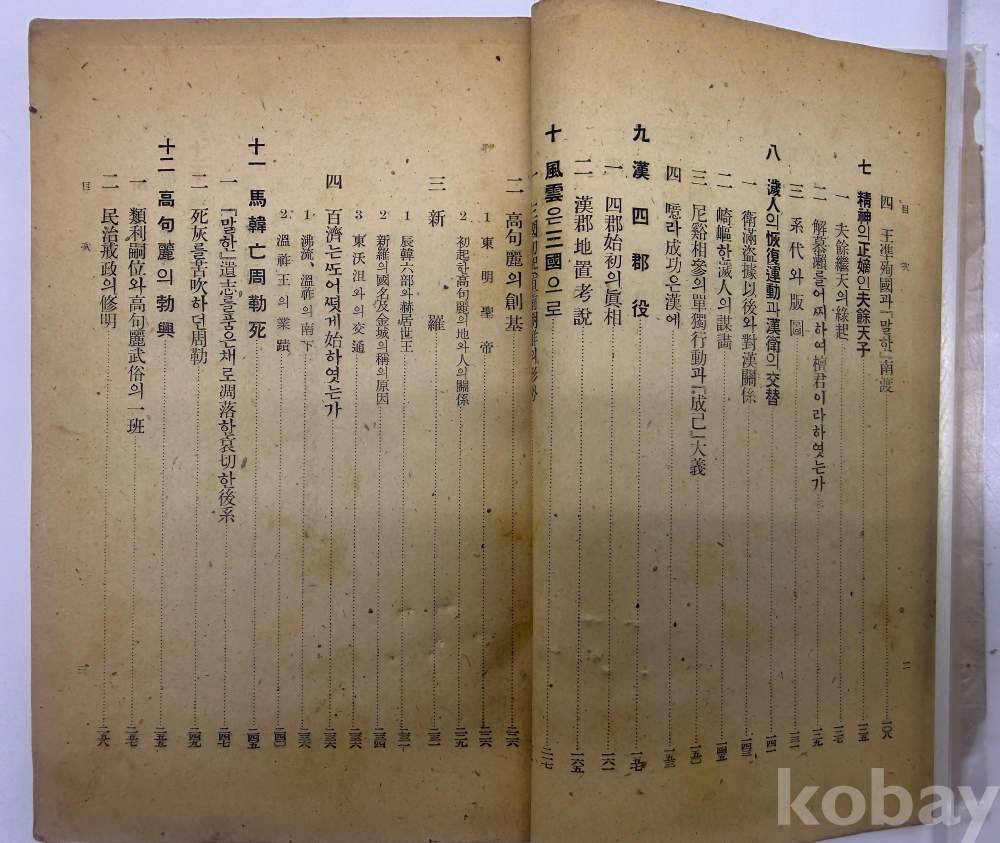 目次
四 王準殉國과『말한』南渡 一〇八
七 精神의正嫡인夫餘天子 一二五
一 夫餘繼天의緣起 一二七
二 解慕漱를어찌하여檀君이라하엿는가 一二九
三 系代와版圖 一三一
八 濊人의恢復運動과漢衛의交替 一四一
一 衛滿盜據以後와對漢關係 一四三
二 崎嶇한濊人의謀畵 一四五
三 尼谿相參의單獨行動과『成己』大義 一五〇
四 噫라成功은漢에 一五三
九 漢四郡役 一五七
一 四郡始初의眞相 一六一
二 漢郡地置考說 一六五
二
十 風雲은三國으로 二一七
二 高句麗의創基 二二六
1 東明聖帝 二二六
2 初起한高句麗의地와人의關係 二二九
三 新羅 二三一
1 辰韓六部와赫居世王 二三一
2 新羅의國名及金城의稱의原因 二三四
3 東沃沮와의交通 二三六
四 百濟는또어떳게始하엿는가 二三六
1 沸流、溫祚의南下 二三六
2 溫祚王의業蹟 二四〇
十一 馬韓亡周勒死 二四五
一 『말한』遺志를품은채로凋落한哀切한後系 二四七
二 死灰를苦吹하던周勒 二四九
十二 高句麗의勃興 二五五
一 類利嗣位와高句麗武俗의一班 二五七
二 民治戒政의修明 二五八
目次
三
kobay